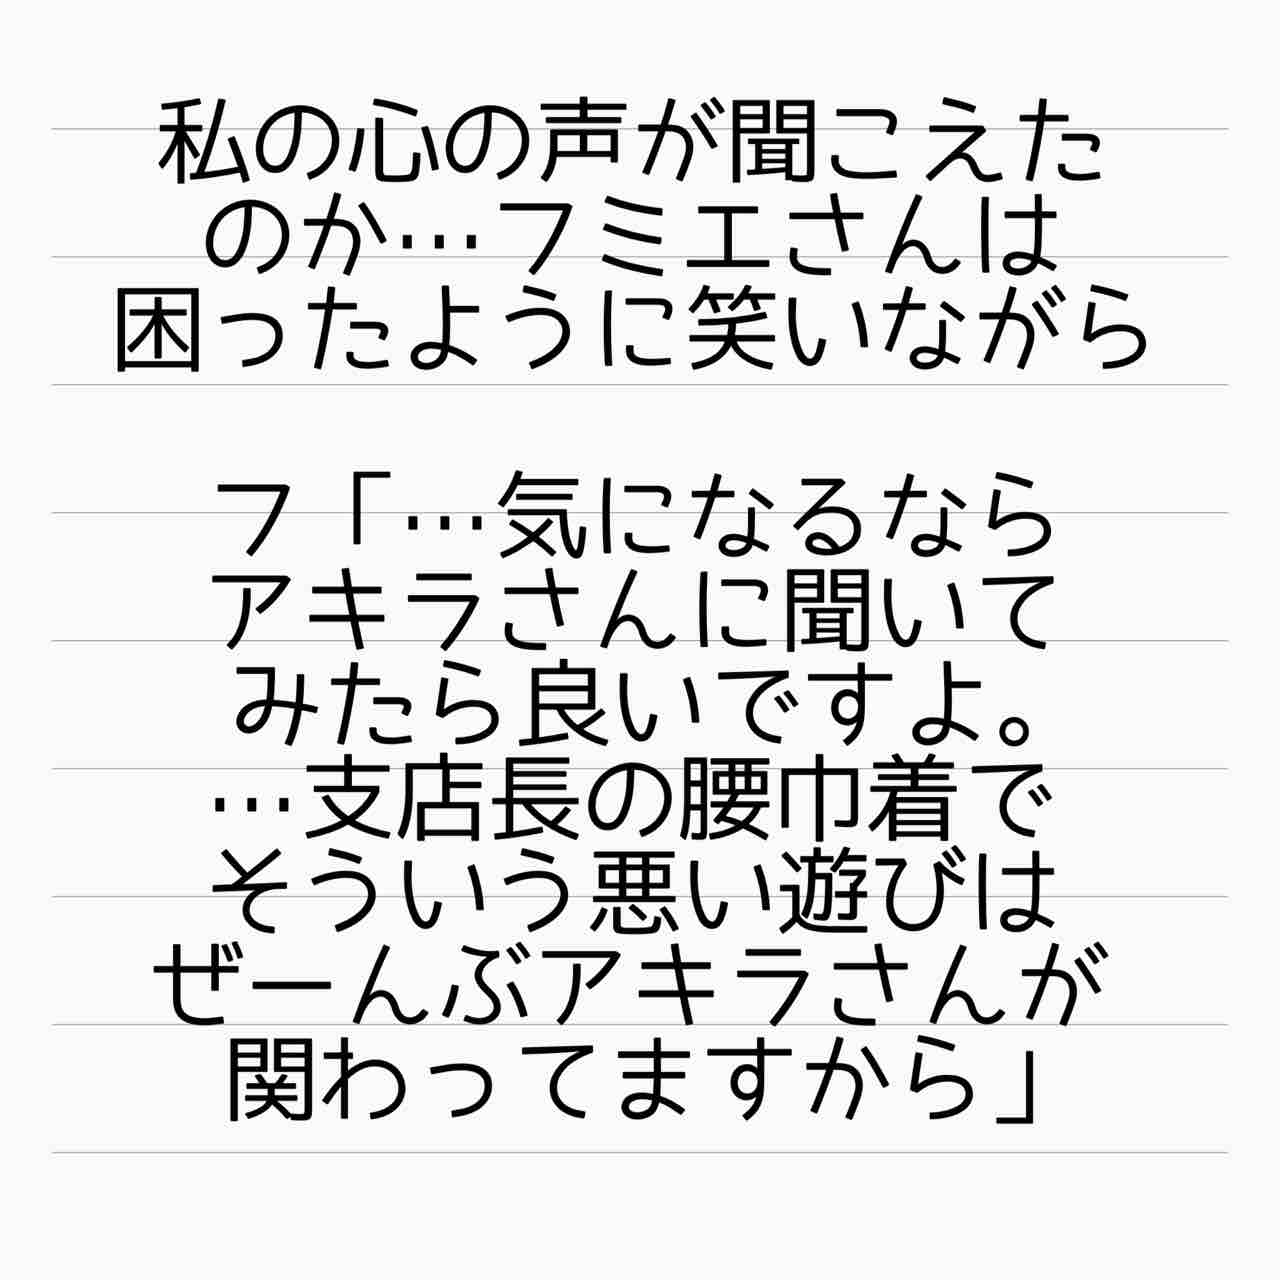 私の心の声が聞こえた
のか…フミエさんは
困ったように笑いながら
フ「…気になるなら
アキラさんに聞いて
みたら良いですよ。
…支店長の腰巾着で
そういう悪い遊びは
ぜーんぶアキラさんが
関わってますから」